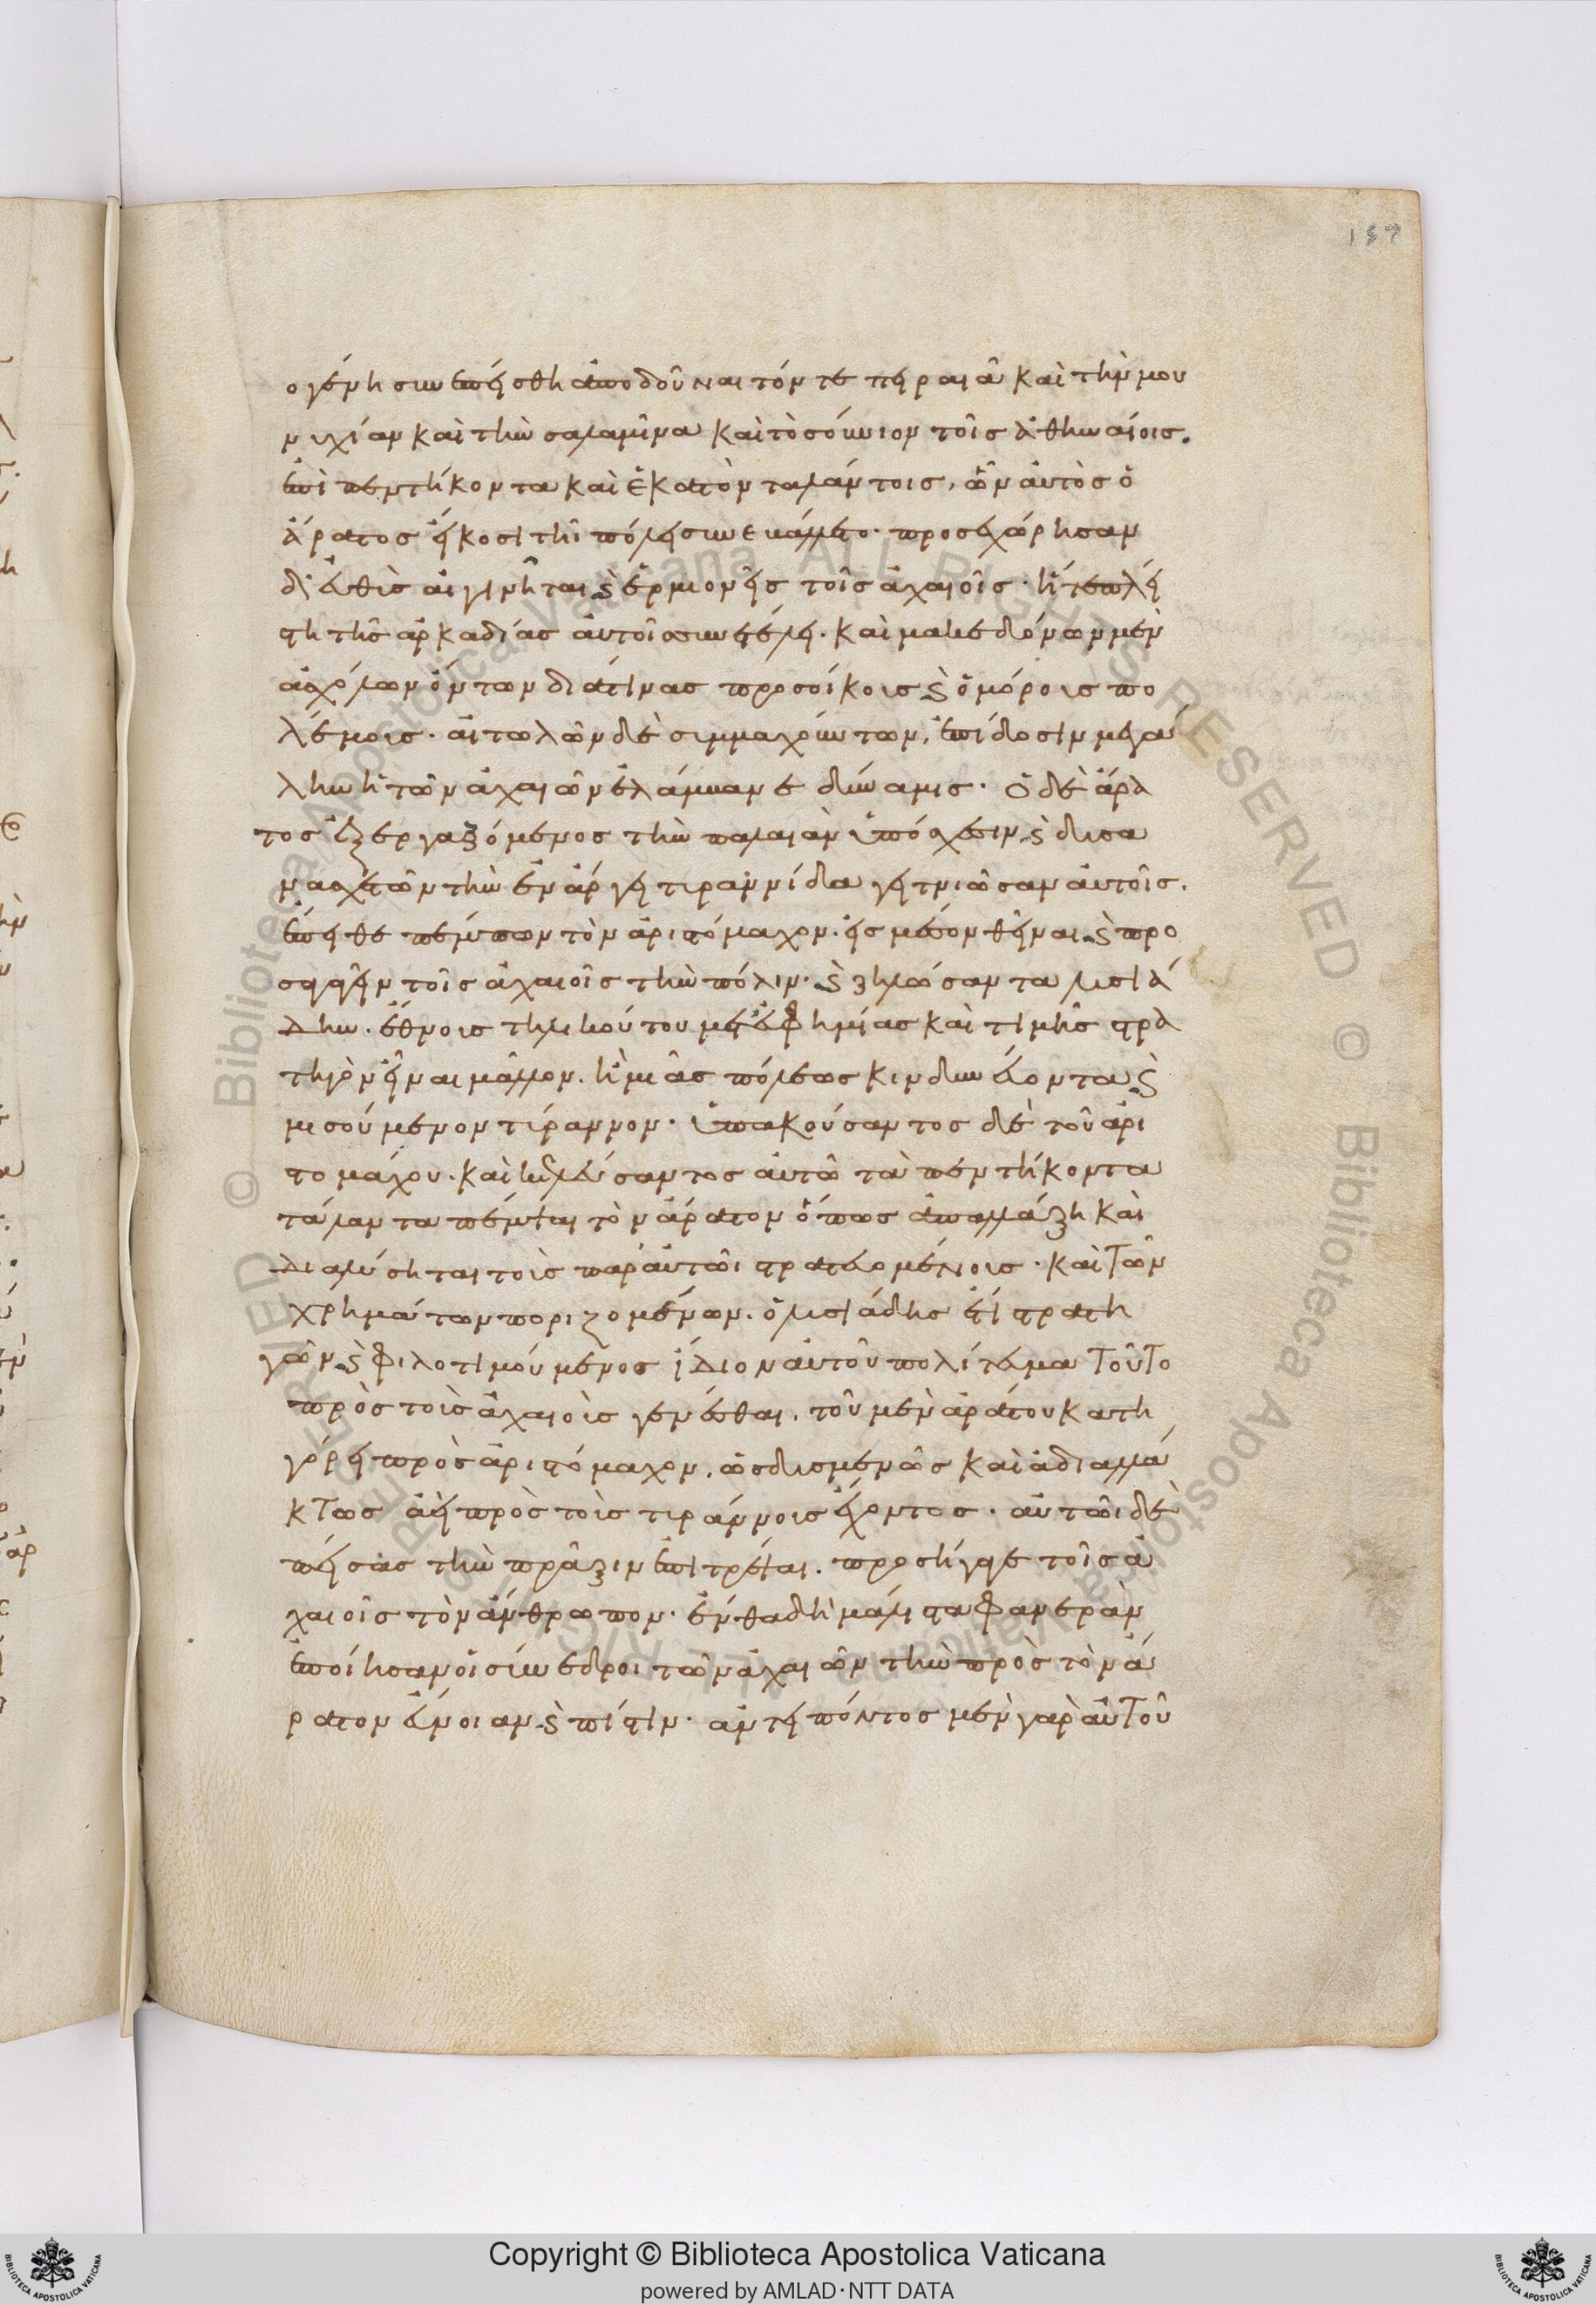 ογένη συνεπείσθη ἀποδοῦναι τόν τε πειραιᾶ καὶ τὴν μου
νυχίαν καὶ τὴν σαλαμῖνα καὶ τὸ σούνιον τοῖς ἀθηναίοις.
ἐπὶ πεντήκοντα καὶ ἑκατὸν ταλάντοις, ὧν αὐτὸς ὁ
ἄρατος εἴκοσι τῆι πόλει συνεβάλλετο· προσεχώρησαν
δ' εὐθὺς αἰγινῆται ϗ ἑρμιονεῖς τοῖς ἀχαιοῖς· ἥ τε πλεί
στη τῆς ἀρκαδίας αὐτοῖς συνετέλει. καὶ μακεδόνων μὲν
ἀσχόλων ὄντων διά τινας προσοίκους ϗ ὁμόρους πο
λέμους· αἰτωλῶν δὲ συμμαχούντων, ἐπίδοσιν μεγά
λην ἡ τῶν ἀχαιῶν ἐλάμβανε δύναμις· ὁ δὲ ἄρα
τος ἐξεργαζόμενος τὴν παλαιὰν ὑπόσχεσιν ϗ δυσα
νασχετῶν τὴν ἐν ἄργει τυραννίδα γειτνιῶσαν αὐτοῖς.
ἔπειθε πέμπων τὸν ἀριστόμαχον. εἰς μέσον θεῖναι ϗ προ
σαγαγεῖν τοῖς ἀχαιοῖς τὴν πόλιν· ϗ ζηλώσαντα λυσιά
δην. ἔθνους τηλικούτου μετ' εὐφημίας καὶ τιμῆς στρα
τηγὸν εἶναι μᾶλλον. ἢ μιᾶς πόλεως κινδυνεύοντα ϗ
μισούμενον τύραννον· ὑπακούσαντος δὲ τοῦ ἀρι
στομάχου. καὶ κελεύσαντος αὐτῶ τὰ πεντήκοντα
τάλαντα πέμψαι τὸν ἄρατον ὅπως ἀπαλλάξη καὶ
διαλύσηται τοὺς παρ' αὐτῶι στρατευομένους· καὶ τῶν
χρημάτων ποριζομένων. ὁ λυσιάδης ἔτι στρατη
γῶν ϗ φιλοτιμούμενος ἴδιον αὐτοῦ πολίτευμα τοῦτο
πρὸς τοὺς ἀχαιοὺς γενέσθαι. τοῦ μὲν ἀράτου κατη
γόρει πρὸς ἀριστόμαχον. ὡς δυσμενῶς καὶ ἀδιαλλά
κτως ἀεὶ πρὸς τοὺς τυράννους ἔχοντος· αὐτῶι δὲ
πείσας τὴν πρᾶξιν ἐπιτρέψαι. προσήγαγε τοῖς ἀ
χαιοῖς τὸν ἄνθρωπον· ἔνθα δὴ μάλιστα φανερὰν
ἐποίησαν οἱ σύνεδροι τῶν ἀχαιῶν τὴν πρὸς τὸν ἄ
ρατον εὔνοιαν ϗ πίστιν· ἀντειπόντος μὲν γὰρ αὐτοῦ